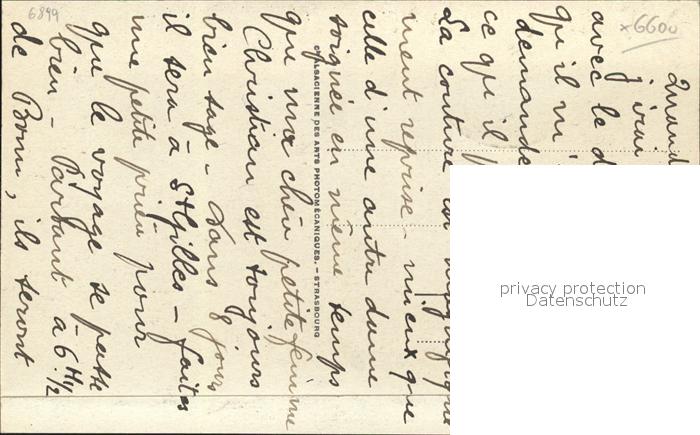 6899
x6600
Quand
j'irai
avec le d
qu'il m'
demande
ce qu'il
La couture est magnifique
ment reprise - mieux que
celle d'une autre dame
soignée en même temps
que ma chère petite femme
Christian est toujours
bien sage - Dans 8 jours
il sera à St Gilles - faites
une petite prière pour
que le voyage se passe
bien - Partant à 6 H 1/2
de Bonn, ils seront
ALSACIENNE DES ARTS PHOTOMÉCANIQUES. - STRASBOURG
privacy protection
Datenschutz